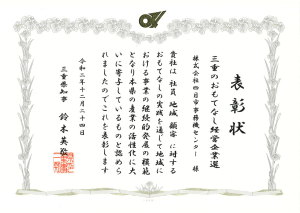 表彰状
三重のおもてなし経営企業選
株式会社四日市事務機センター 様
貴社は 社員 地域 顧客 に対する
おもてなしの実践を通じて地域に
おける事業の継続的発展の模範
となり本県の産業の活性化に大
いに寄与しているものと認めら
れましたのでこれを表彰します
令和三年十二月二十四日
三重県知事 鈴木英敬